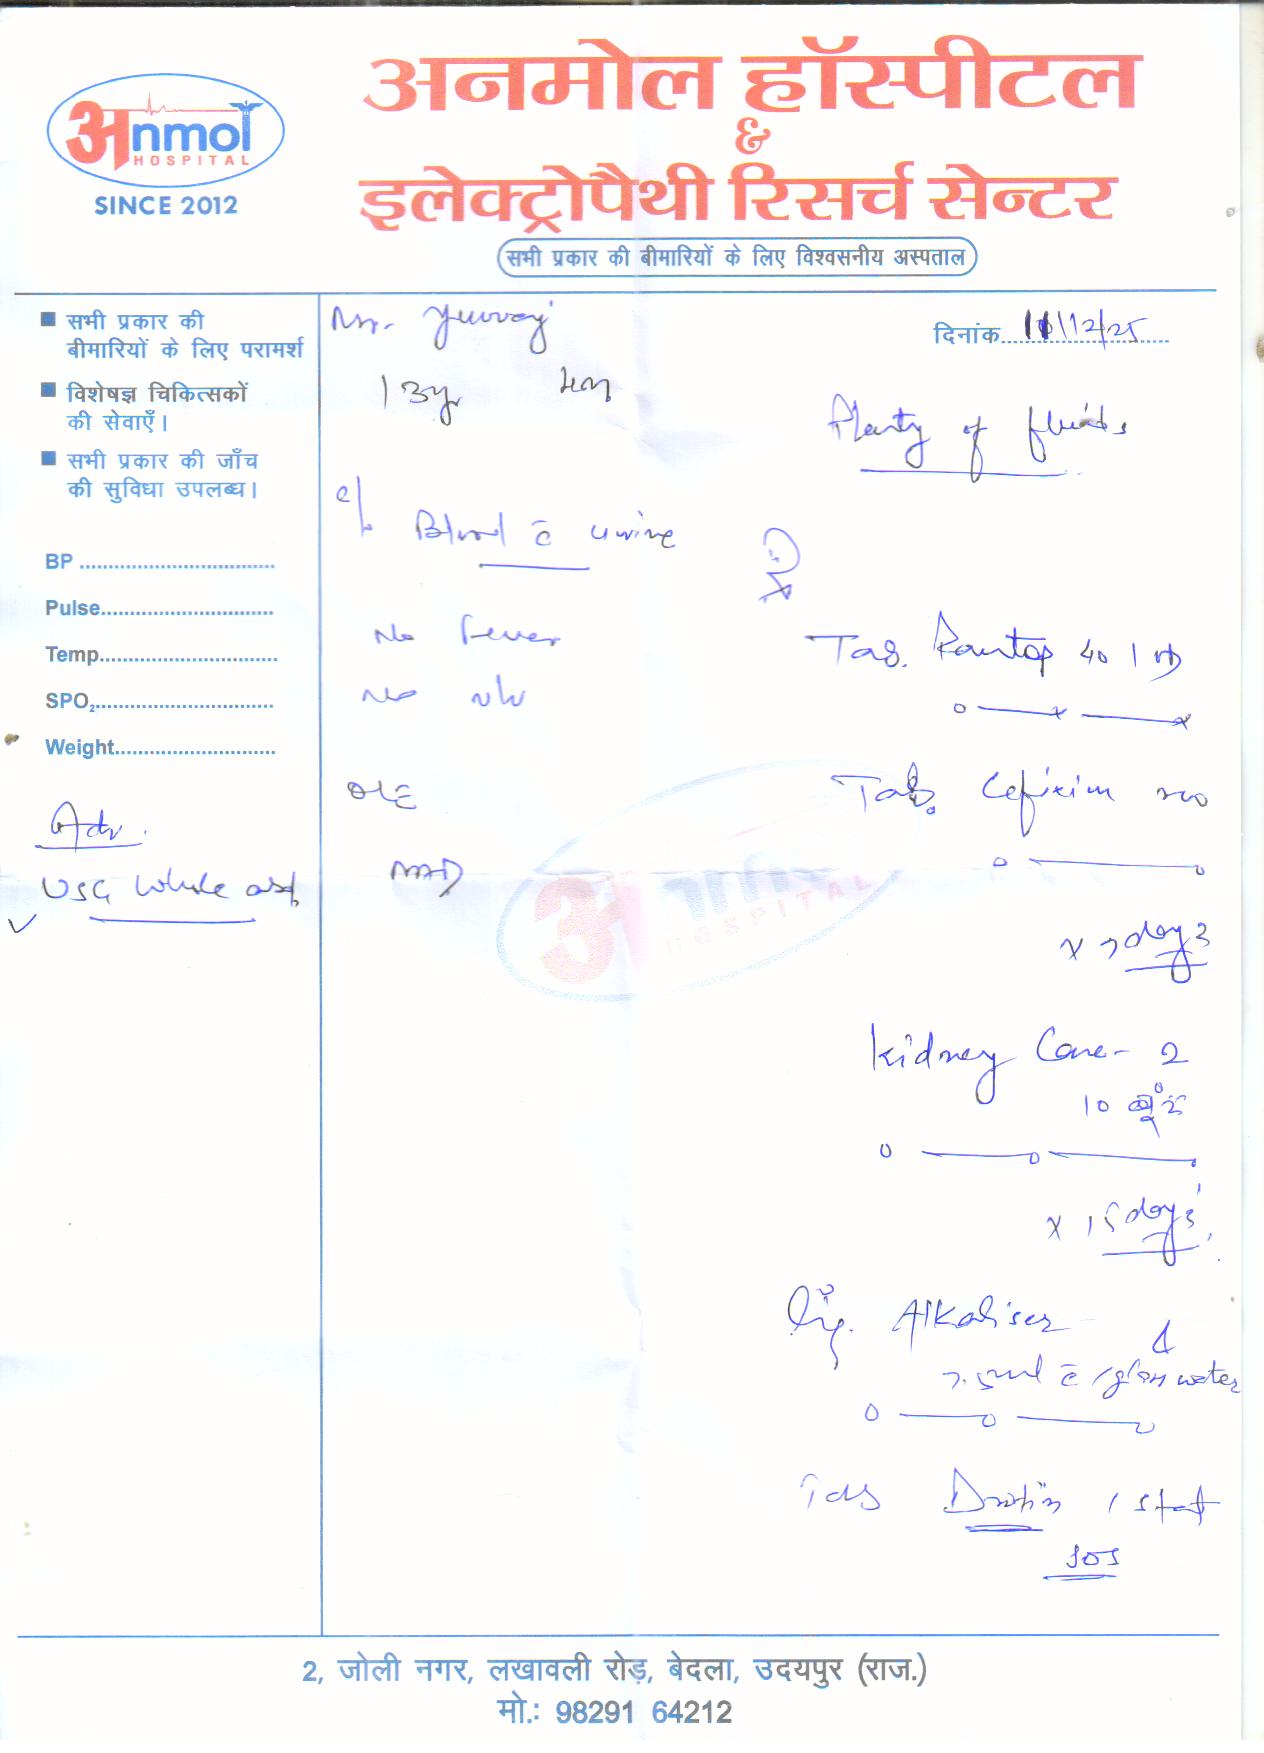 अनmol
HOSPITAL
SINCE 2012
अनमोल हॉस्पीटल
&
इलेक्ट्रोपैथी रिसर्च सेन्टर
सभी प्रकार की बीमारियों के लिए विश्वसनीय अस्पताल
■ सभी प्रकार की
बीमारियों के लिए परामर्श
■ विशेषज्ञ चिकित्सकों
की सेवाएँ।
■ सभी प्रकार की जाँच
की सुविधा उपलब्ध।
BP
Pulse
Temp
SPO₂
Weight
Adv.
USG Whole abd
Mr. Yuvraj
13y
c/o Blood c̄ urine
No Fever
No n/v
O/E
NAD
दिनांक 11/12/25
Planty of fluids
Rx
Tab. Pantop 40 1 OD
o — x — x
Tab. Cefixim 200
o — o
x 7 days
Kidney Care - 2
10 बूंद
o — o — o
x 15 days
Syp. Alkaliser
7.5ml c̄ 1 glass water
o — o — o
Tab Drotin 1 stat
SOS
HOSPITAL
2, जोली नगर, लखावली रोड़, बेदला, उदयपुर (राज.)
मो.: 98291 64212